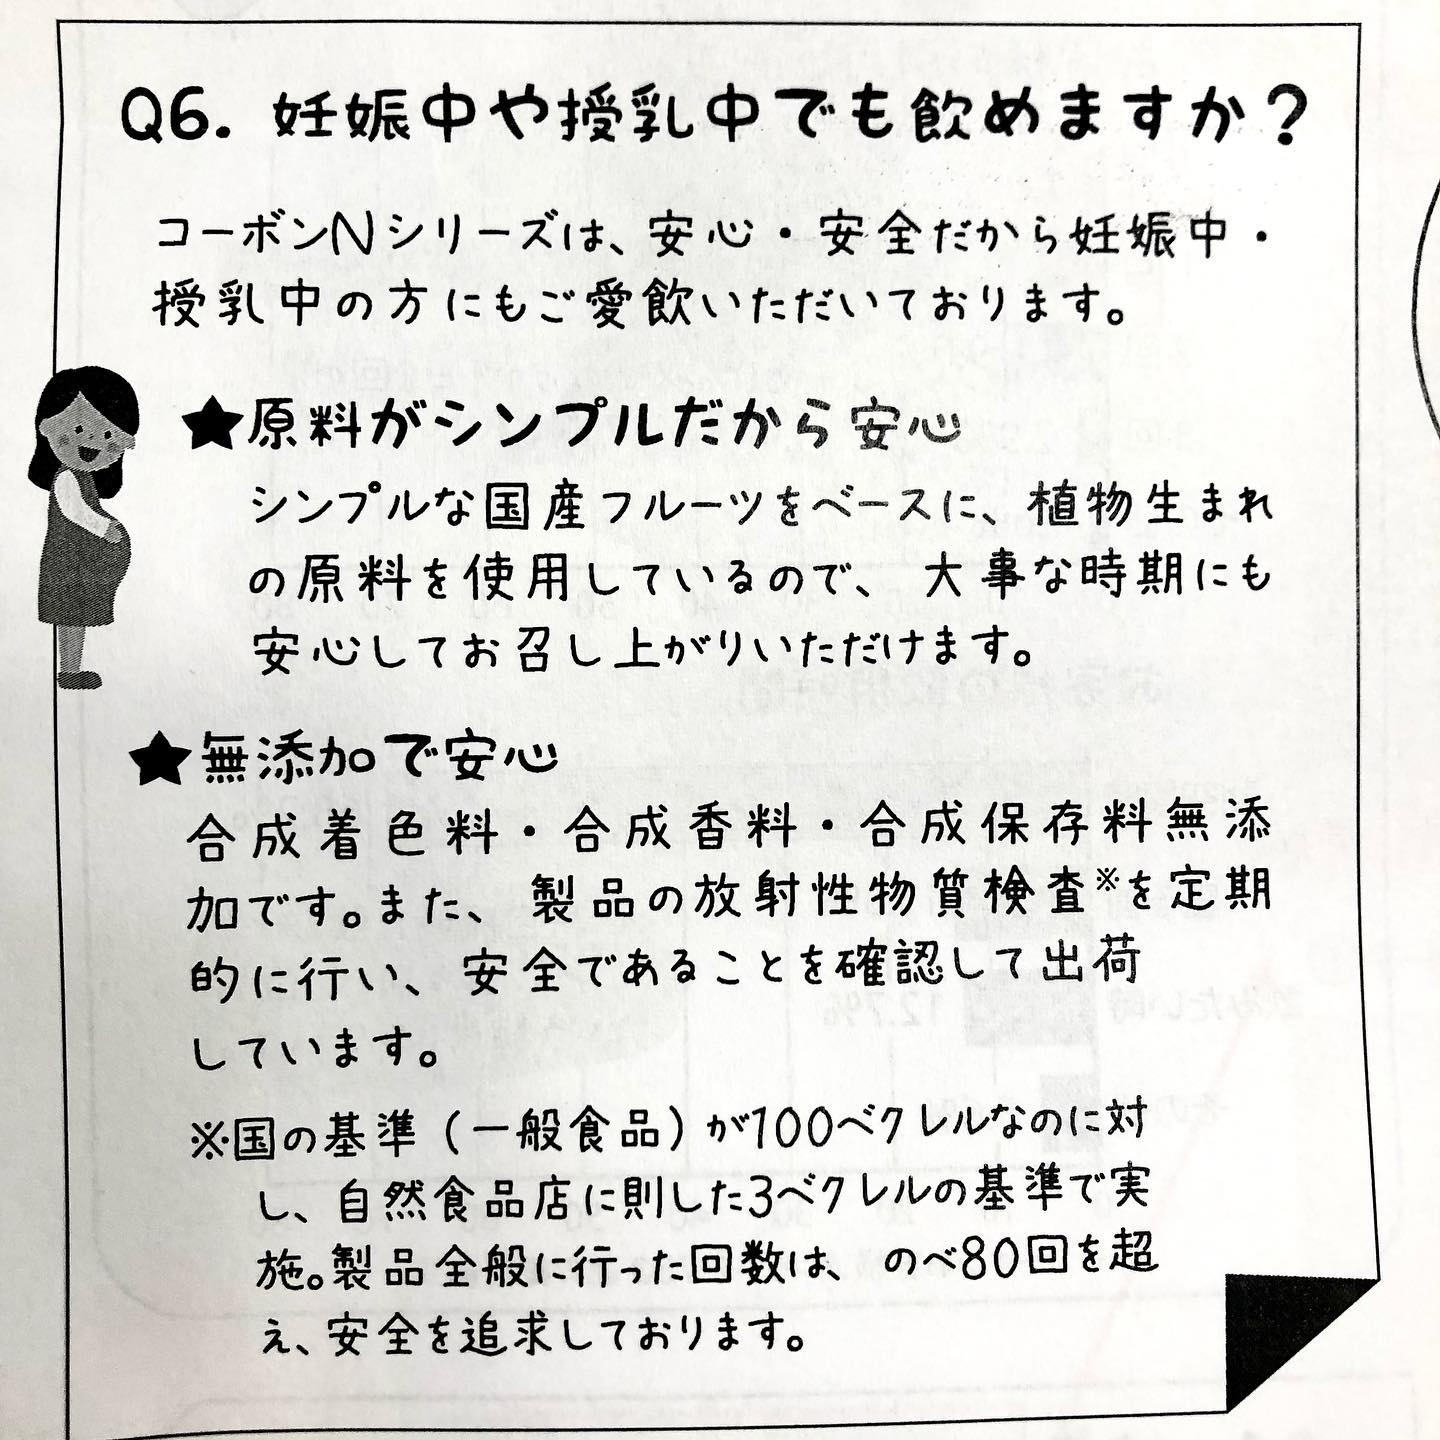 Q6. 妊娠中や授乳中でも飲めますか？
コーボンNシリーズは、安心・安全だから妊娠中・
授乳中の方にもご愛飲いただいております。
★原料がシンプルだから安心
シンプルな国産フルーツをベースに、植物生まれ
の原料を使用しているので、大事な時期にも
安心してお召し上がりいただけます。
★無添加で安心
合成着色料・合成香料・合成保存料無添
加です。また、製品の放射性物質検査※を定期
的に行い、安全であることを確認して出荷
しています。
※国の基準（一般食品）が100ベクレルなのに対
し、自然食品店に則した3ベクレルの基準で実
施。製品全般に行った回数は、のべ80回を超
え、安全を追求しております。